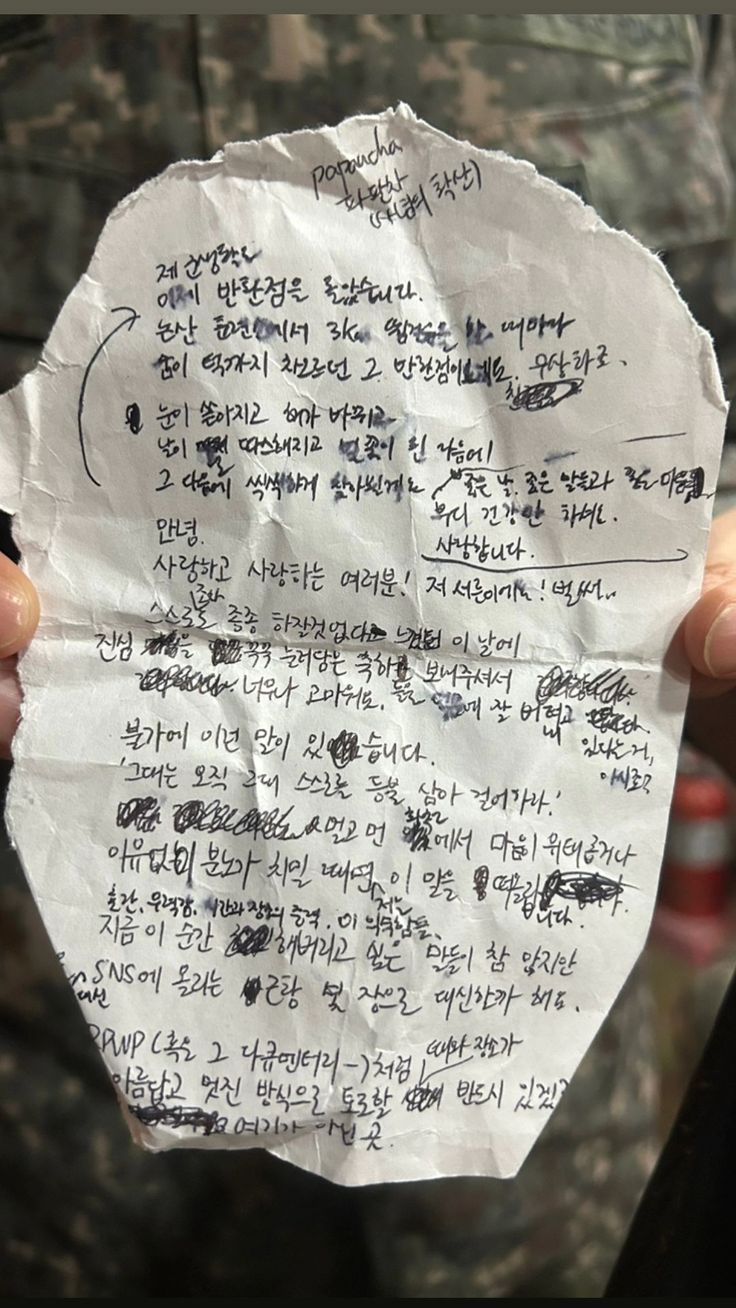 papancha
파판차
(사념의 확산)
제 군생활도
이제 반환점을 돌았습니다.
논산 훈련소에서 3km 뜀걸음을 할 때마다
숨이 턱까지 차오르던 그 반환점이네요. 무상하군.
눈이 쏟아지고 해가 바뀌고
날이 따스해지고 벚꽃이 핀 다음에
그 다음에 씩씩하게 찾아뵐게요
좋은 날, 좋은 말들과 좋은 마음
부디 건강만 하세요.
사랑합니다.
안녕.
사랑하고 사랑하는 여러분! 저 서른이에요! 벌써..
스스로도 종종 하잘것없다 느꼈던 이 날에
진심 을 꾹꾹 눌러담은 축하 보내주셔서
너무나 고마워요. 들을 에 잘 버려내고
있다는 거,
아시죠?
불가에 이런 말이 있습니다.
'그대는 오직 그대 스스로를 등불 삼아 걸어가라.'
멀고 먼 에서 마음이 위태롭거나
이유없이 분노가 치밀 때면, 저는 이 말을 떠올립니다.
혼란, 무력감, 시간과 장소의 중력. 이 의무감들.
지금 이 순간 해버리고 싶은 말들이 참 많지만
SNS에 올리는 근황 몇 장으로 대신할까 해요.
대신
RPWP (혹은 그 다큐멘터리-)처럼
아름답고 멋진 방식으로 토로할 때와 장소가 반드시 있겠죠
여기가 아닌 곳.